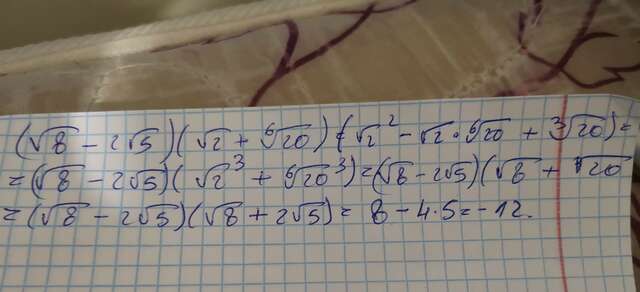 (√8 − 2√5)(√2 + ⁶√20)(√2² − √2 · ⁶√20 + ³√20) =
= (√8 − 2√5)(√2³ + ⁶√20³) = (√8 − 2√5)(√8 + √20
= (√8 − 2√5)(√8 + 2√5) = 8 − 4·5 = −12.